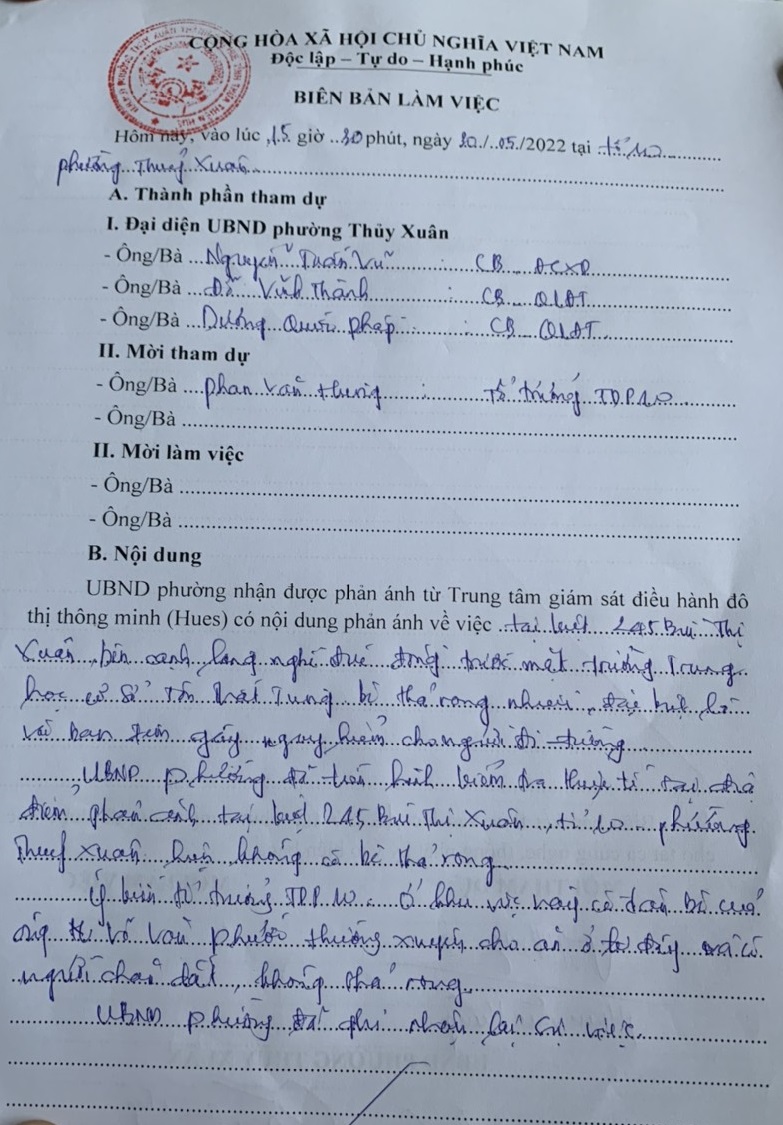 CỘNG HÒA XÃ HỘI CHỦ NGHĨA VIỆT NAM
Độc lập – Tự do – Hạnh phúc
BIÊN BẢN LÀM VIỆC
Hôm nay, vào lúc 15 giờ 30 phút, ngày 20/05/2022 tại tổ 10
phường Thuỷ Xuân
A. Thành phần tham dự
I. Đại diện UBND phường Thủy Xuân
- Ông/Bà Nguyễn Tuấn Vũ : CB ĐCXD
- Ông/Bà Đỗ Vĩnh Thành : CB QLĐT
- Ông/Bà Dương Quốc Pháp : CB QLĐT
II. Mời tham dự
- Ông/Bà Phan Văn Hưng : Tổ trưởng TDP 10
- Ông/Bà
II. Mời làm việc
- Ông/Bà
- Ông/Bà
B. Nội dung
UBND phường nhận được phản ánh từ Trung tâm giám sát điều hành đô
thị thông minh (Hues) có nội dung phản ánh về việc tại kiệt 245 Bùi Thị
Xuân, bên cạnh làng nghề đúc đồng trước mặt trường Trung
học cơ sở Tôn Thất Tùng bò thả rong nhiều, đặc biệt là
về ban đêm gây nguy hiểm cho người đi đường
UBND phường đã tiến hành kiểm tra thực tế tại địa
điểm phản ánh tại kiệt 245 Bùi Thị Xuân, tổ 10 phường
Thuỷ Xuân, hiện không có bò thả rong
Ý kiến tổ trưởng TDP 10: Ở khu vực này có đàn bò của
ông Võ Văn Phước thường xuyên cho ăn ở tại đây và có
người chăn dắt, không thả rong.
UBND phường đã ghi nhận lại sự việc